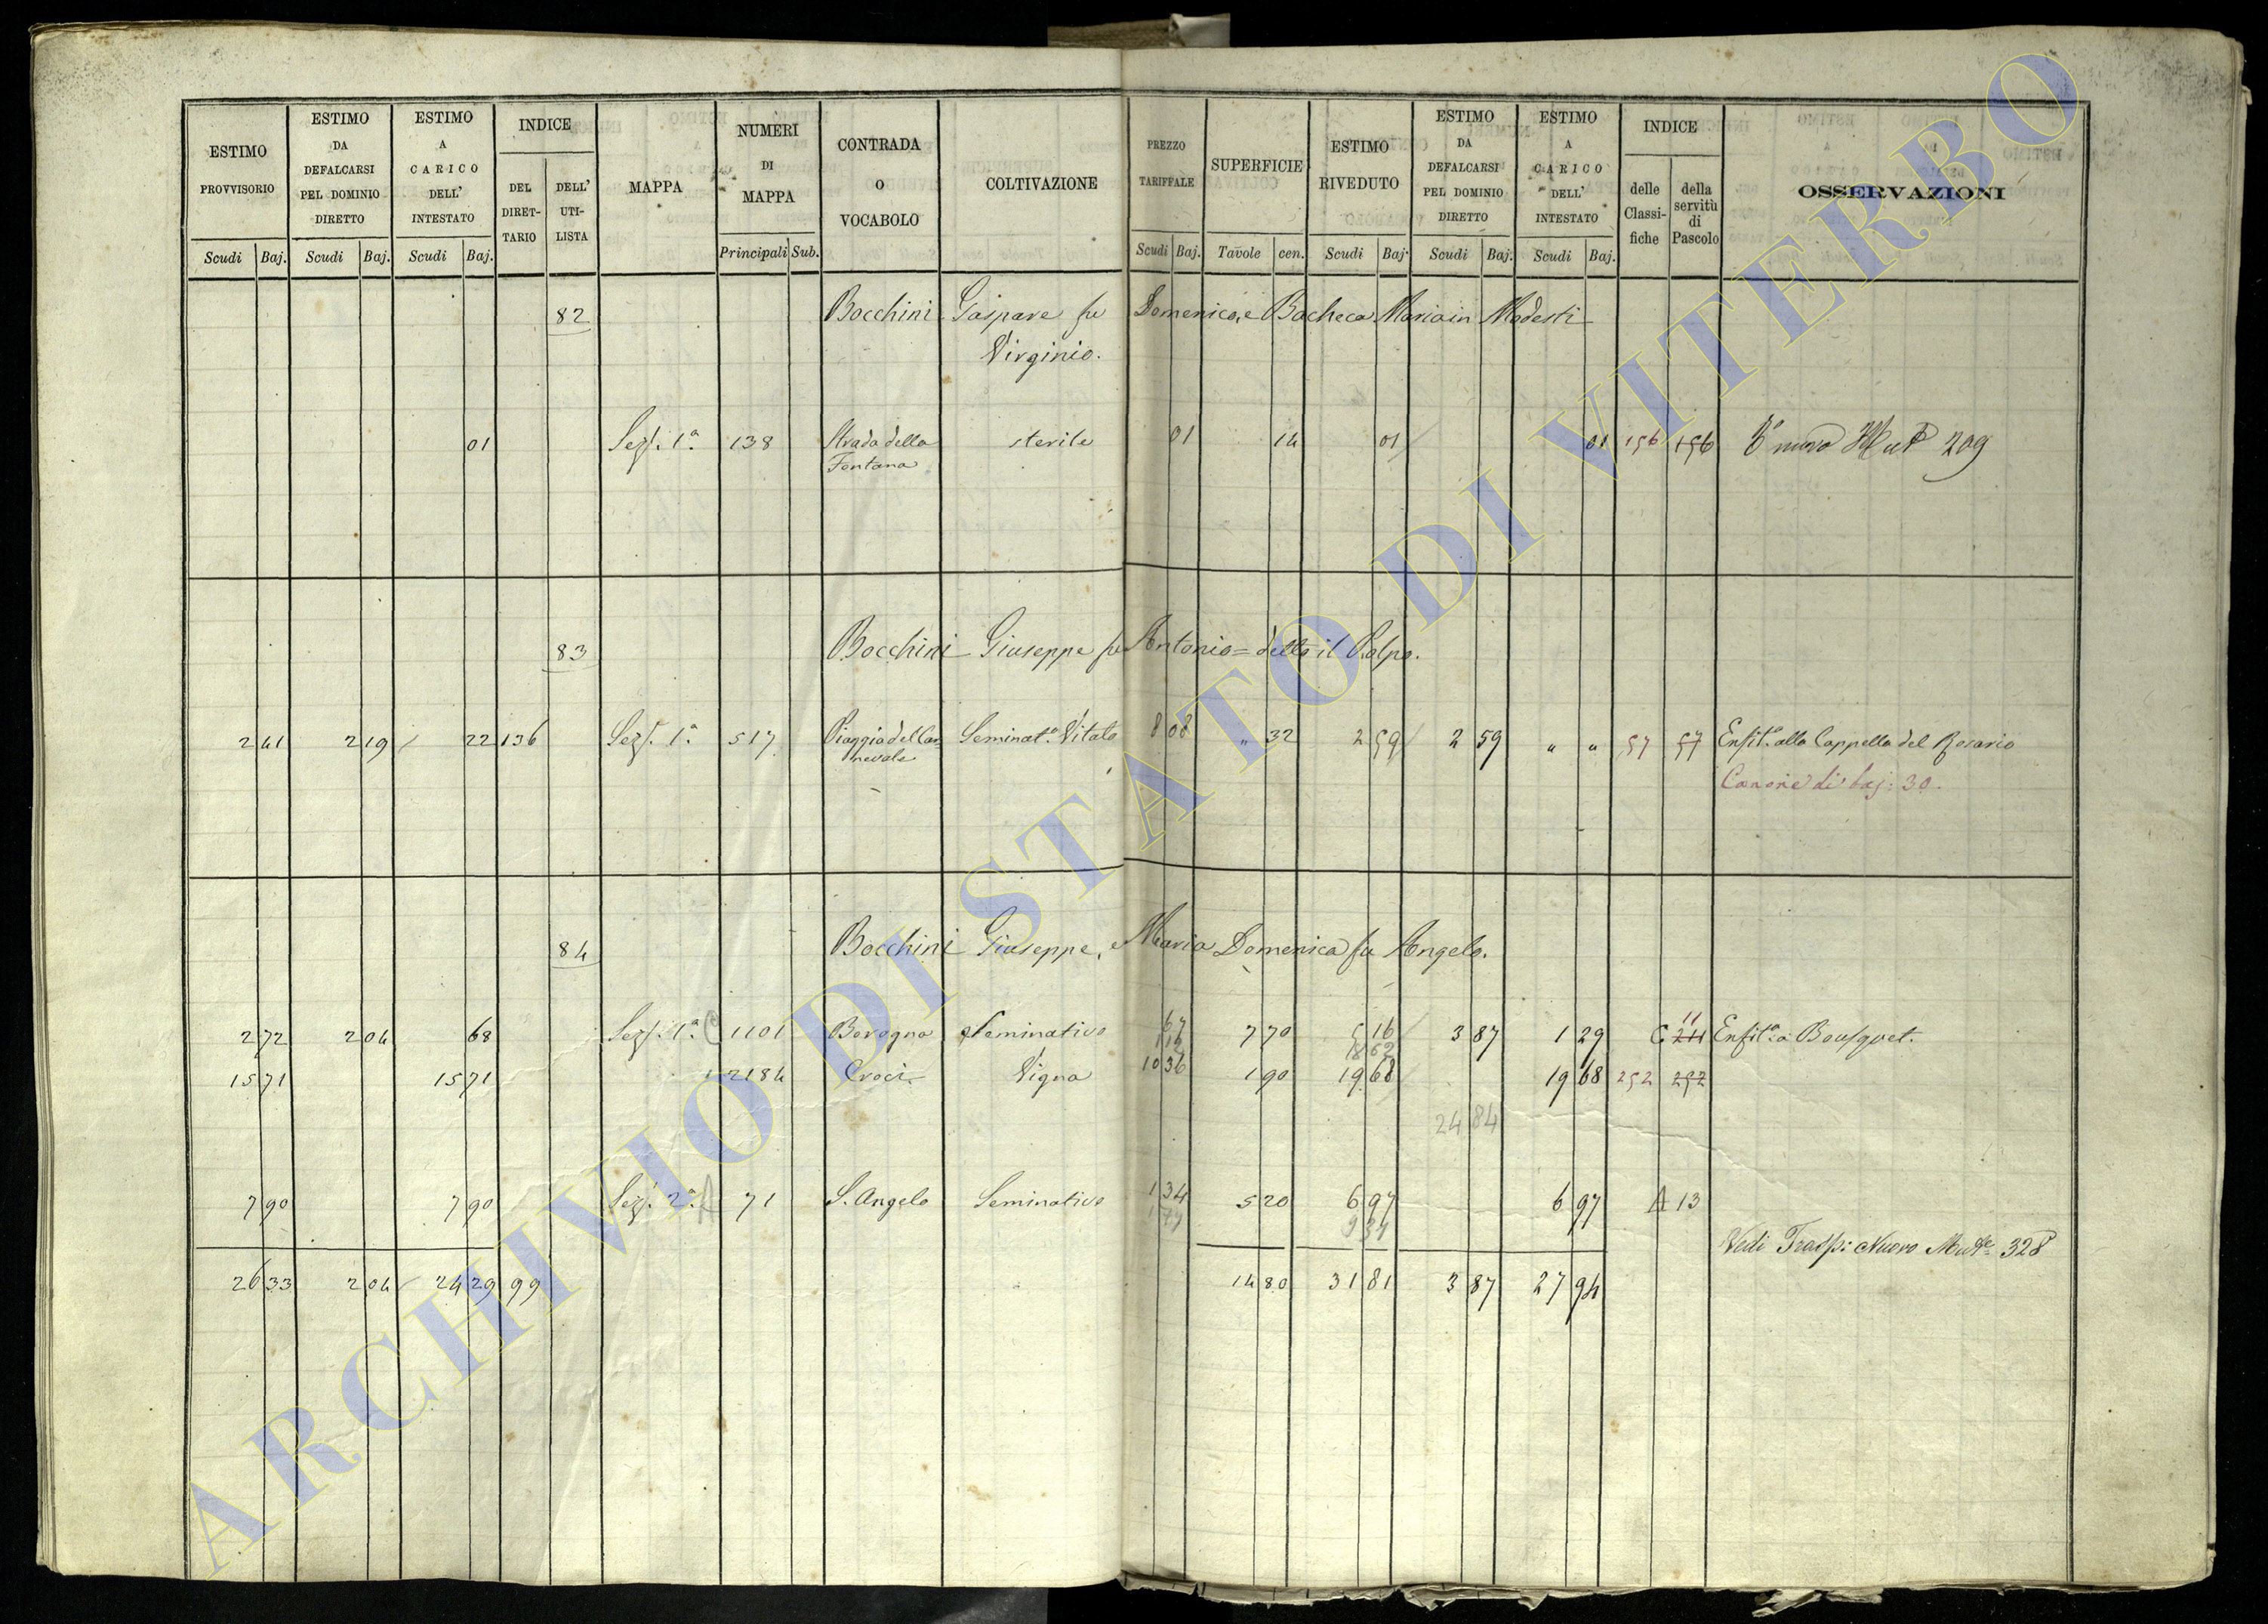 ESTIMO PROVVISORIO Scudi Baj.
ESTIMO DA DEFALCARSI PEL DOMINIO DIRETTO Scudi Baj.
ESTIMO A CARICO DELL' INTESTATO Scudi Baj.
INDICE DEL DIRET-TARIO DELL' UTI-LISTA
MAPPA
NUMERI DI MAPPA Principali Sub.
CONTRADA O VOCABOLO
COLTIVAZIONE
PREZZO TARIFFALE Scudi Baj.
SUPERFICIE Tavole cen.
ESTIMO RIVEDUTO Scudi Baj.
ESTIMO DA DEFALCARSI PEL DOMINIO DIRETTO Scudi Baj.
ESTIMO A CARICO DELL' INTESTATO Scudi Baj.
INDICE delle Classi-fiche della servitù di Pascolo
OSSERVAZIONI
82 Bocchini Gaspare fu Domenico, e Bacheca Maria in Modesti
Virginio.
01 Sez. 1ª 138 Strada della sterile 01 14 01 01 156 156 nuovo 209
Fontana
83 Bocchini Giuseppe fu Antonio = detto il Polpo.
2 41 2 19 22 136 Sez. 1ª 517 Piaggia del Car- Seminatº Vitato 8 08 " 32 2 59 2 59 " " 57 57 Enfitª alla Cappella del Rosario
nevale Canone di baj: 30.
84 Bocchini Giuseppe, e Maria Domenica fu Angelo.
2 72 2 04 68 Sez. 1ª C 1101 Bovogna Seminativo 67 7 70 5 16 3 87 1 29 C 11 211 Enfitª a Bousquet.
15 71 15 71 2184 Croci Vigna 10 36 1 90 19 68 19 68 252 252
24 84
7 90 7 90 Sez. 2ª A 71 S. Angelo Seminativo 1 34 5 20 6 97 6 97 A 13
9 31
Vedi Trasp: Nuovo 328
26 33 2 04 24 29 99 14 80 31 81 3 87 27 94
ARCHIVIO DI STATO DI VITERBO